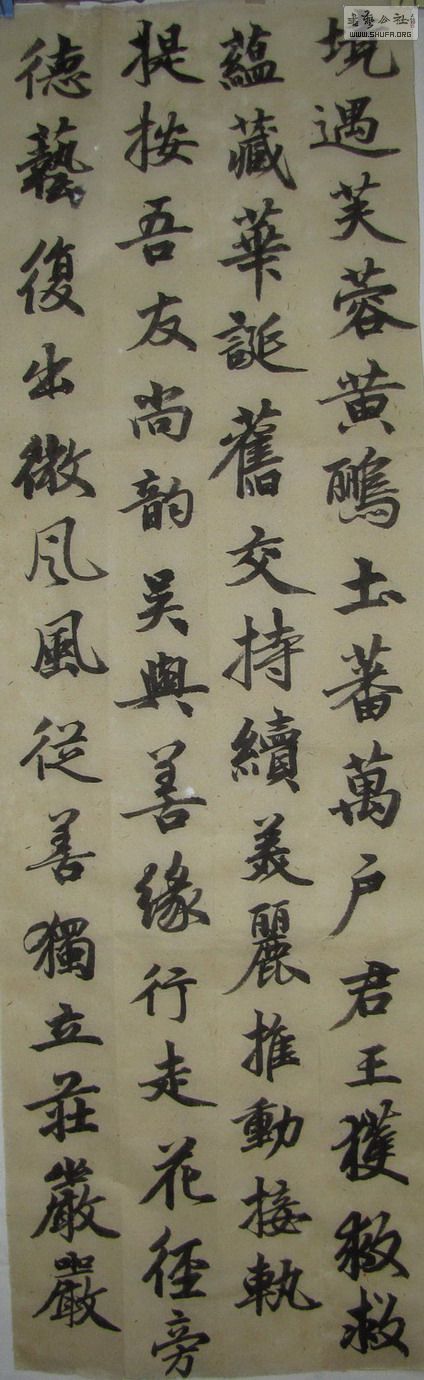 境遇芙蓉黄鸝土蕃萬户君王獲救救
蘊藏華誕舊交持續美麗推動接執
提按吾友尚韵吴興善緣行走花徑旁
德藝復出微風風從善獨立莊嚴嚴
書藝公社
WWW.SHUFA.ORG